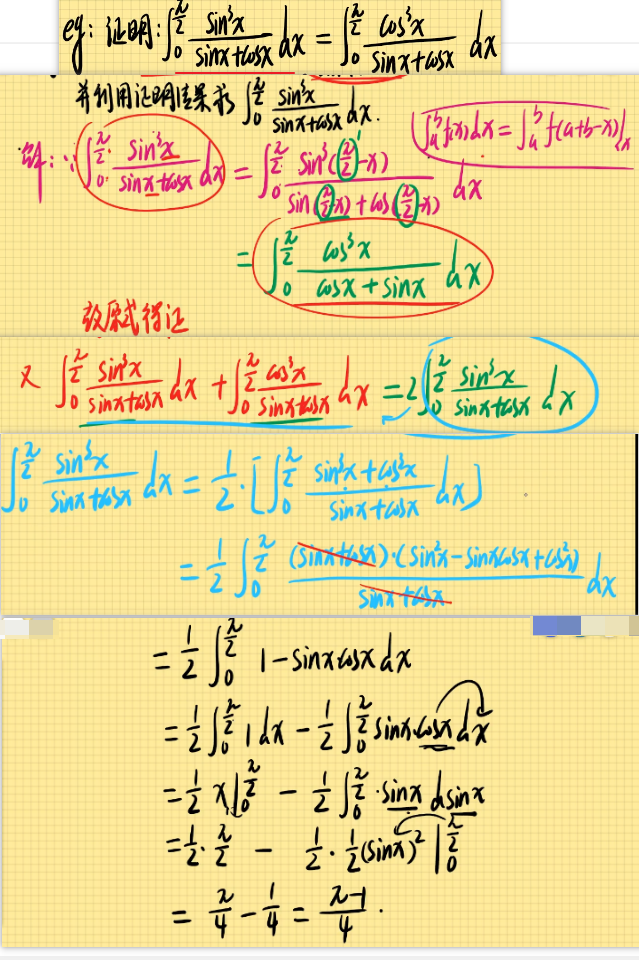 eg: 证明: ∫₀^(π/2) sin³x/(sinx+cosx) dx = ∫₀^(π/2) cos³x/(sinx+cosx) dx
并利用证明结果求 ∫₀^(π/2) sin³x/(sinx+cosx) dx.
∫ₐᵇ f(x)dx = ∫ₐᵇ f(a+b-x)dx
解: ∵ ∫₀^(π/2) sin³x/(sinx+cosx) dx = ∫₀^(π/2) sin³(π/2-x)/(sin(π/2-x)+cos(π/2-x)) dx
= ∫₀^(π/2) cos³x/(cosx+sinx) dx
故原式得证
又 ∫₀^(π/2) sin³x/(sinx+cosx) dx + ∫₀^(π/2) cos³x/(sinx+cosx) dx = 2∫₀^(π/2) sin³x/(sinx+cosx) dx
∫₀^(π/2) sin³x/(sinx+cosx) dx = 1/2·[∫₀^(π/2) (sin³x+cos³x)/(sinx+cosx) dx]
= 1/2 ∫₀^(π/2) (sinx+cosx)·(sin²x-sinxcosx+cos²x)/(sinx+cosx) dx
= 1/2 ∫₀^(π/2) 1-sinxcosx dx
= 1/2 ∫₀^(π/2) 1dx - 1/2 ∫₀^(π/2) sinx·cosx dx
= 1/2 x|₀^(π/2) - 1/2 ∫₀^(π/2) ·sinx dsinx
= 1/2·π/2 - 1/2·1/2(sinx)²|₀^(π/2)
= π/4 - 1/4 = (π-1)/4.